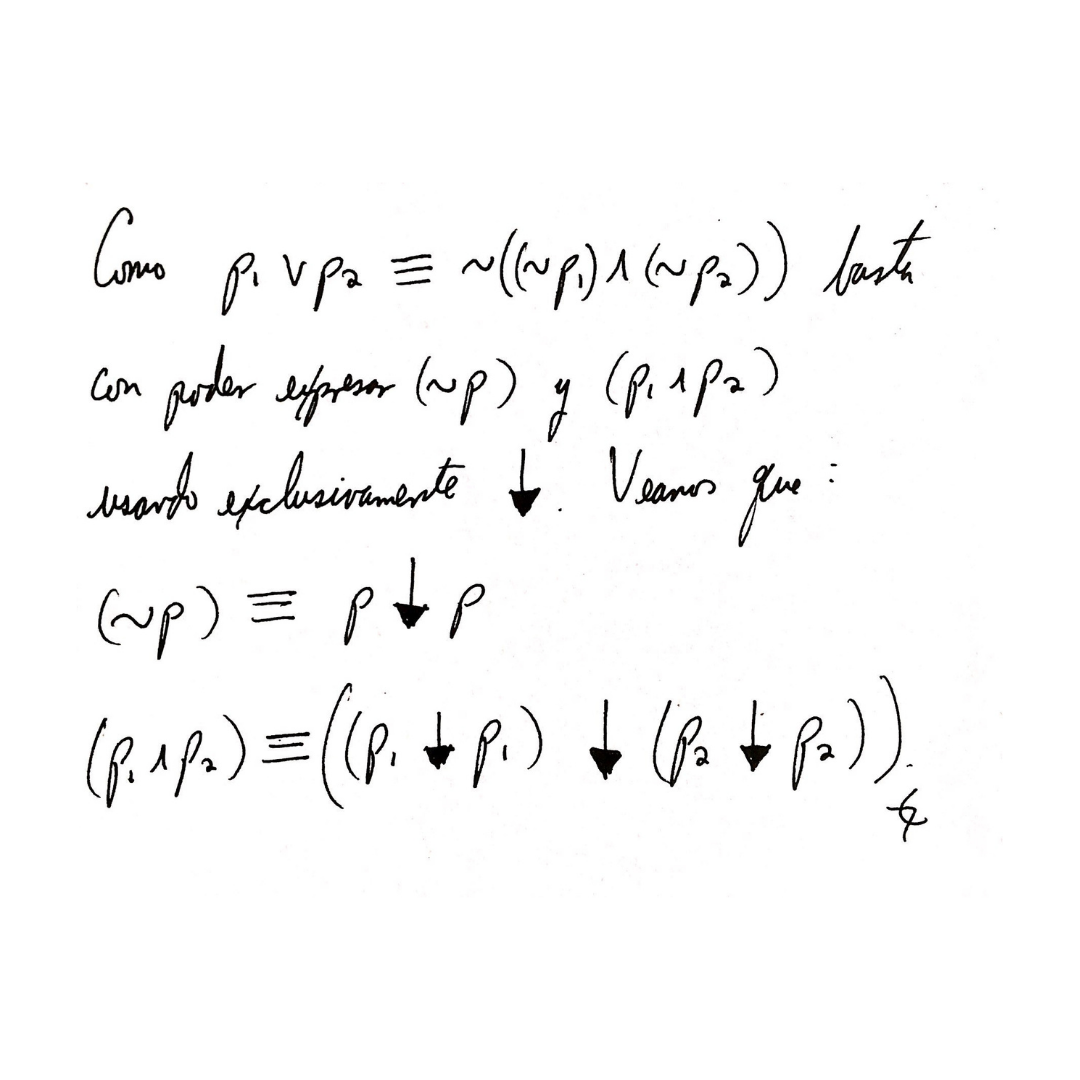 Como p₁ ∨ p₂ ≡ ~((~p₁) ∧ (~p₂)) basta
con poder expresar (~p) y (p₁ ∧ p₂)
usando exclusivamente ↓. Veamos que:
(~p) ≡ p ↓ p
(p₁ ∧ p₂) ≡ ((p₁ ↓ p₁) ↓ (p₂ ↓ p₂)).